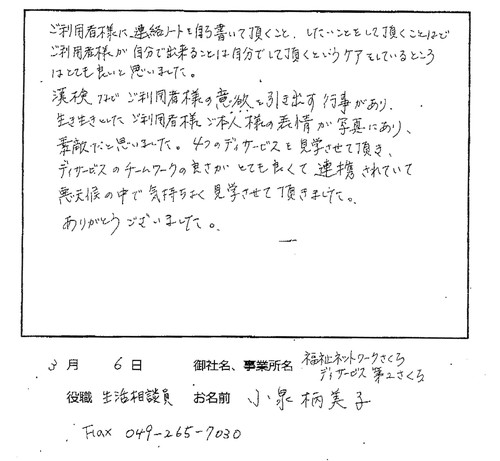 ご利用者様に連絡ノートを自ら書いて頂くこと、したいことをして頂くことなど
ご利用者様が自分で出来ることは自分でして頂くというケアをしているところ
はとても良いと思いました。
漢検などご利用者様の意欲を引き出す行事があり、
生き生きとしたご利用者様ご本人様の表情が写真にあり、
素敵だと思いました。4つのデイサービスを見学させて頂き、
デイサービスのチームワークの良さがとても良くて連携されていて
悪天候の中で気持ちよく見学させて頂きました。
ありがとうございました。
3月 6日 御社名、事業所名 福祉ネットワークさくら
デイサービス第2さくら
役職 生活相談員 お名前 小泉 柄美子
Fax 049-265-7030